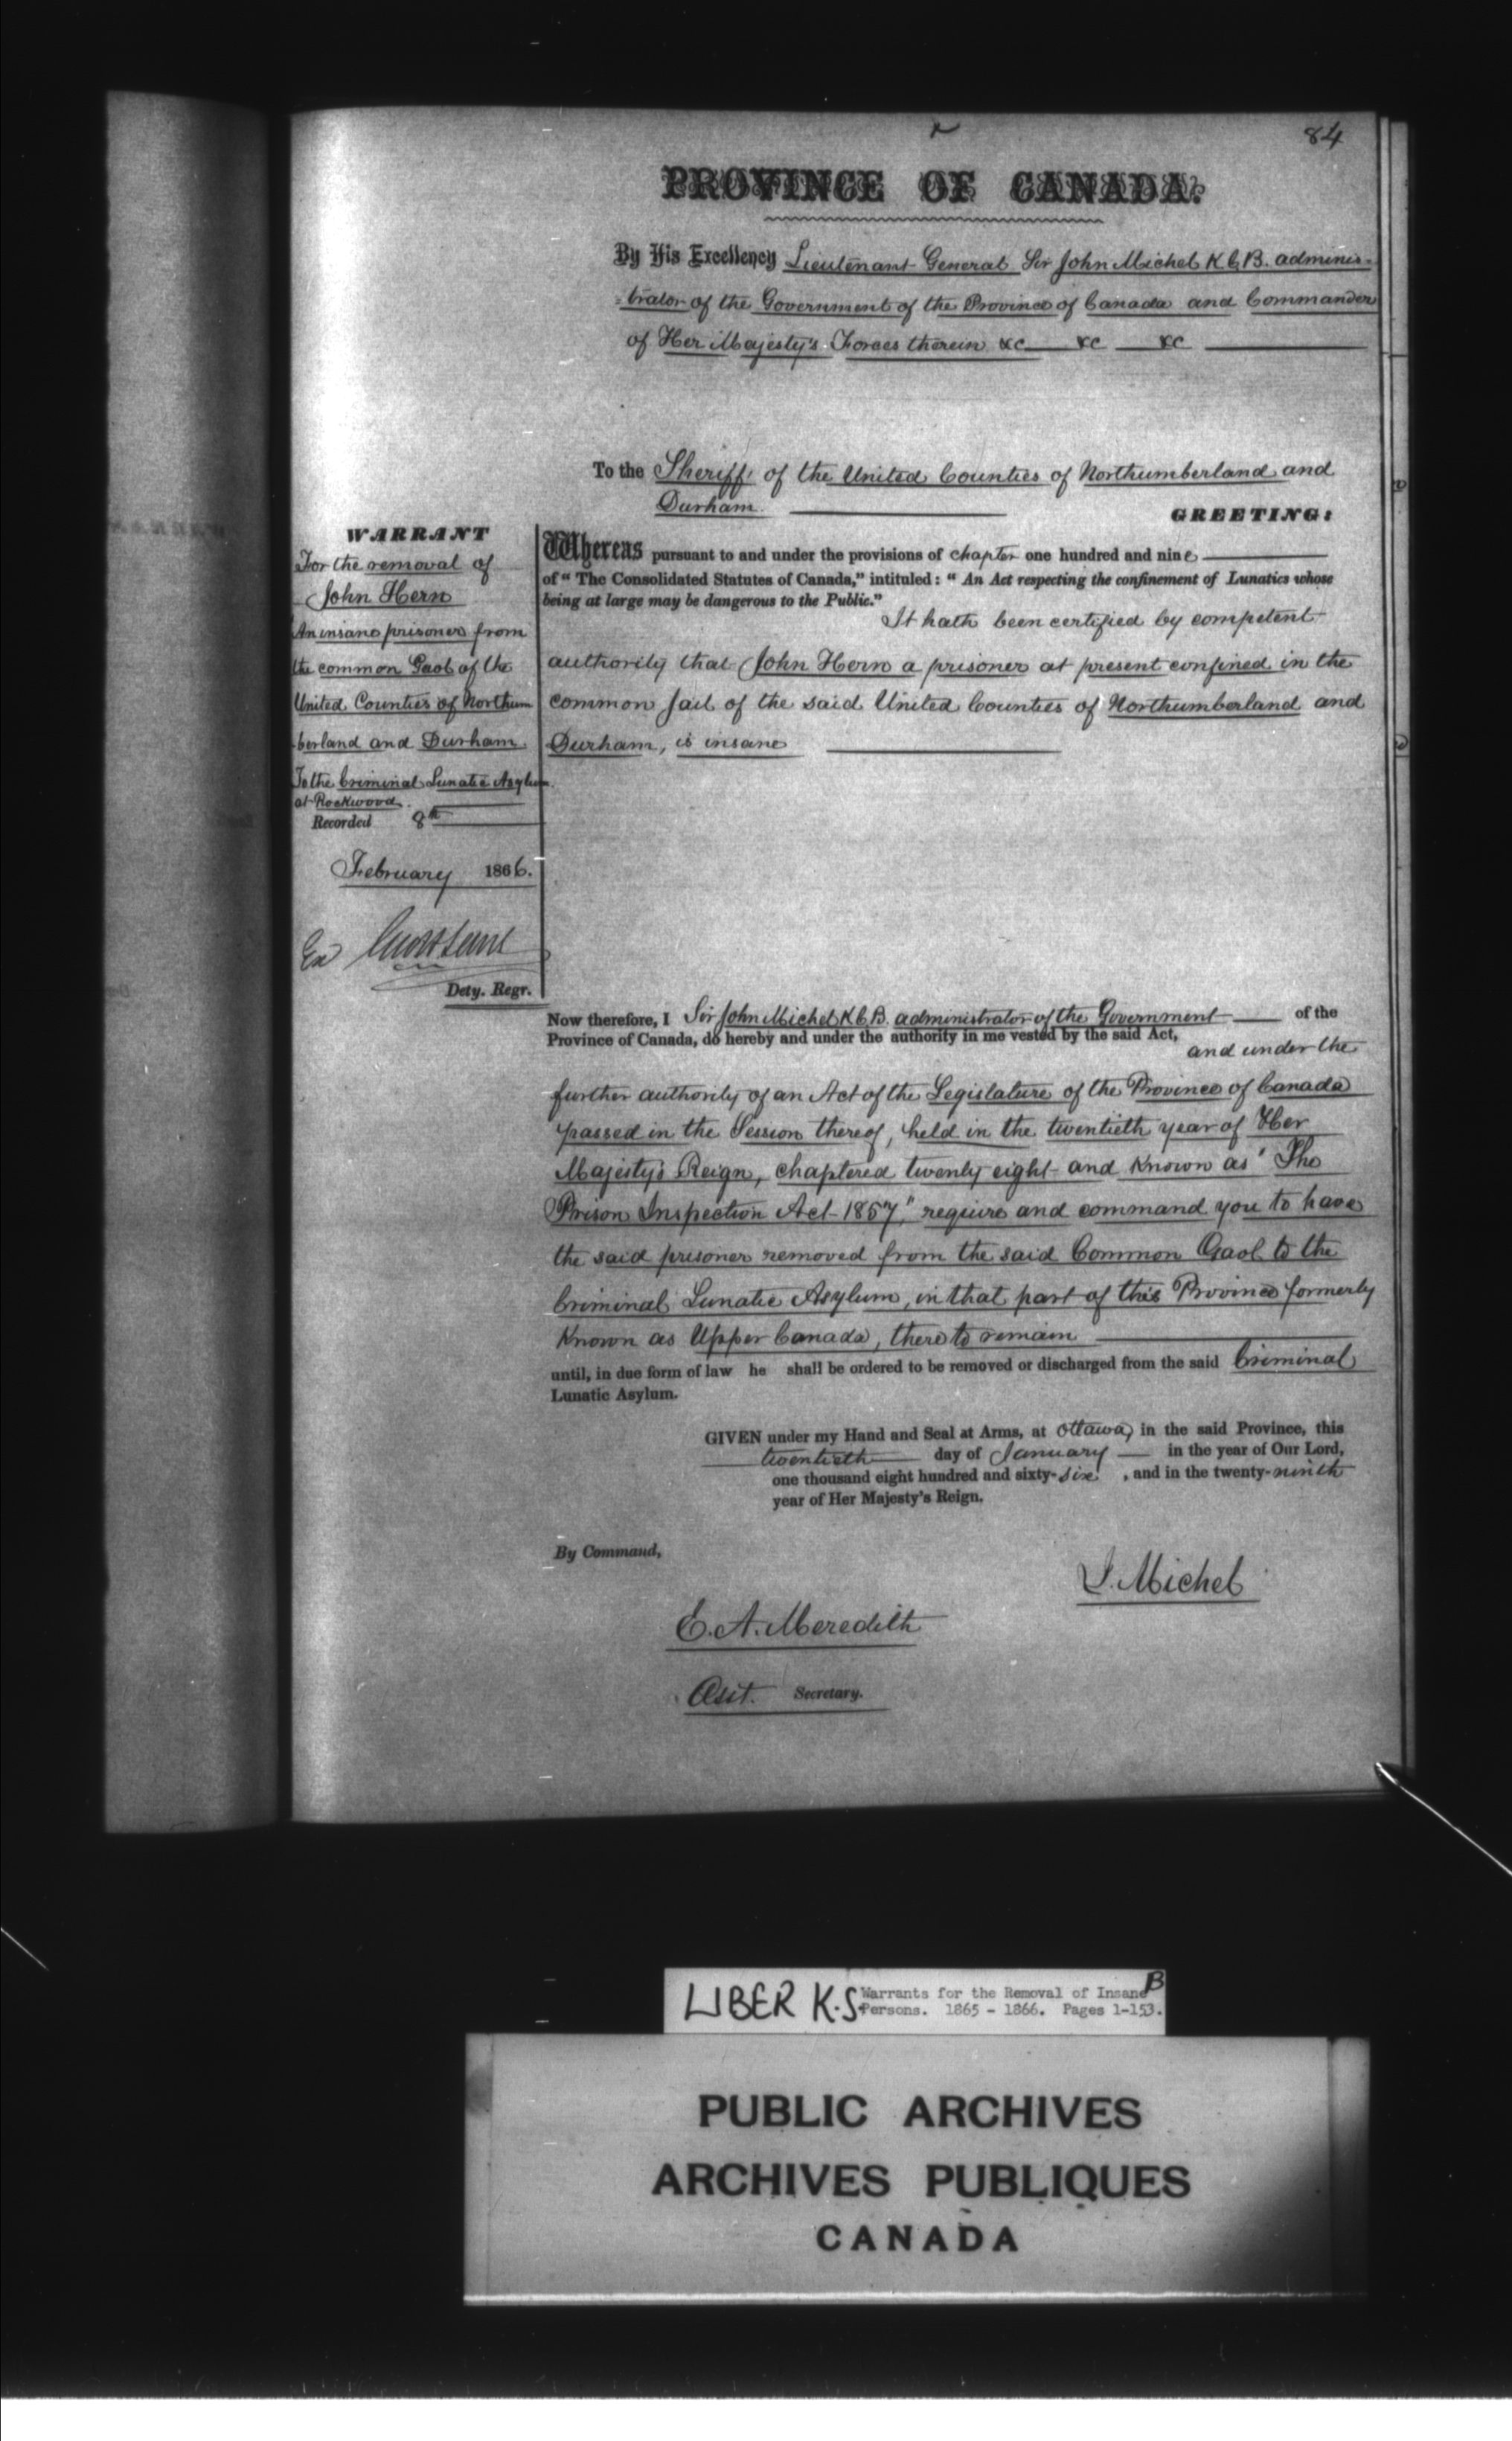 84
PROVINCE OF CANADA.
By His Excellency Lieutenant General Sir John Michel K.C.B. adminis=
=trator of the Government of the Province of Canada and Commander
of Her Majesty's Forces therein &c &c &c
To the Sheriff of the United Counties of Northumberland and
Durham.
GREETING:
WARRANT
For the removal of
John Hern
An insane prisoner from
the common Gaol of the
United Counties of Northum
berland and Durham.
To the Criminal Lunatic Asylum.
at Rockwood.
Recorded 8th
February 1866.
Dety. Regr.
Whereas pursuant to and under the provisions of chapter one hundred and nine
of "The Consolidated Statutes of Canada," intituled: "An Act respecting the confinement of Lunatics whose
being at large may be dangerous to the Public."
It hath been certified by competent
authority that John Hern a prisoner at present confined in the
common Jail of the said United Counties of Northumberland and
Durham, is insane
Now therefore, I Sir John Michel K.C.B. administrator of the Government of the
Province of Canada, do hereby and under the authority in me vested by the said Act,
and under the
further authority of an Act of the Legislature of the Province of Canada
passed in the Session thereof, held in the twentieth year of Her
Majesty's Reign, chaptered twenty eight and Known as "The
Prison Inspection Act 1857," require and command you to have
the said prisoner removed from the said Common Gaol to the
Criminal Lunatic Asylum, in that part of this Province formerly
Known as Upper Canada, there to remain
until, in due form of law he shall be ordered to be removed or discharged from the said Criminal
Lunatic Asylum.
GIVEN under my Hand and Seal at Arms, at Ottawa, in the said Province, this
twentieth day of January in the year of Our Lord,
one thousand eight hundred and sixty-six, and in the twenty-ninth
year of Her Majesty's Reign.
By Command,
J. Michel
E. A. Meredith
Asst. Secretary.
LIBER K.S. Warrants for the Removal of Insane B
Persons. 1865 - 1866. Pages 1-153.
PUBLIC ARCHIVES
ARCHIVES PUBLIQUES
CANADA